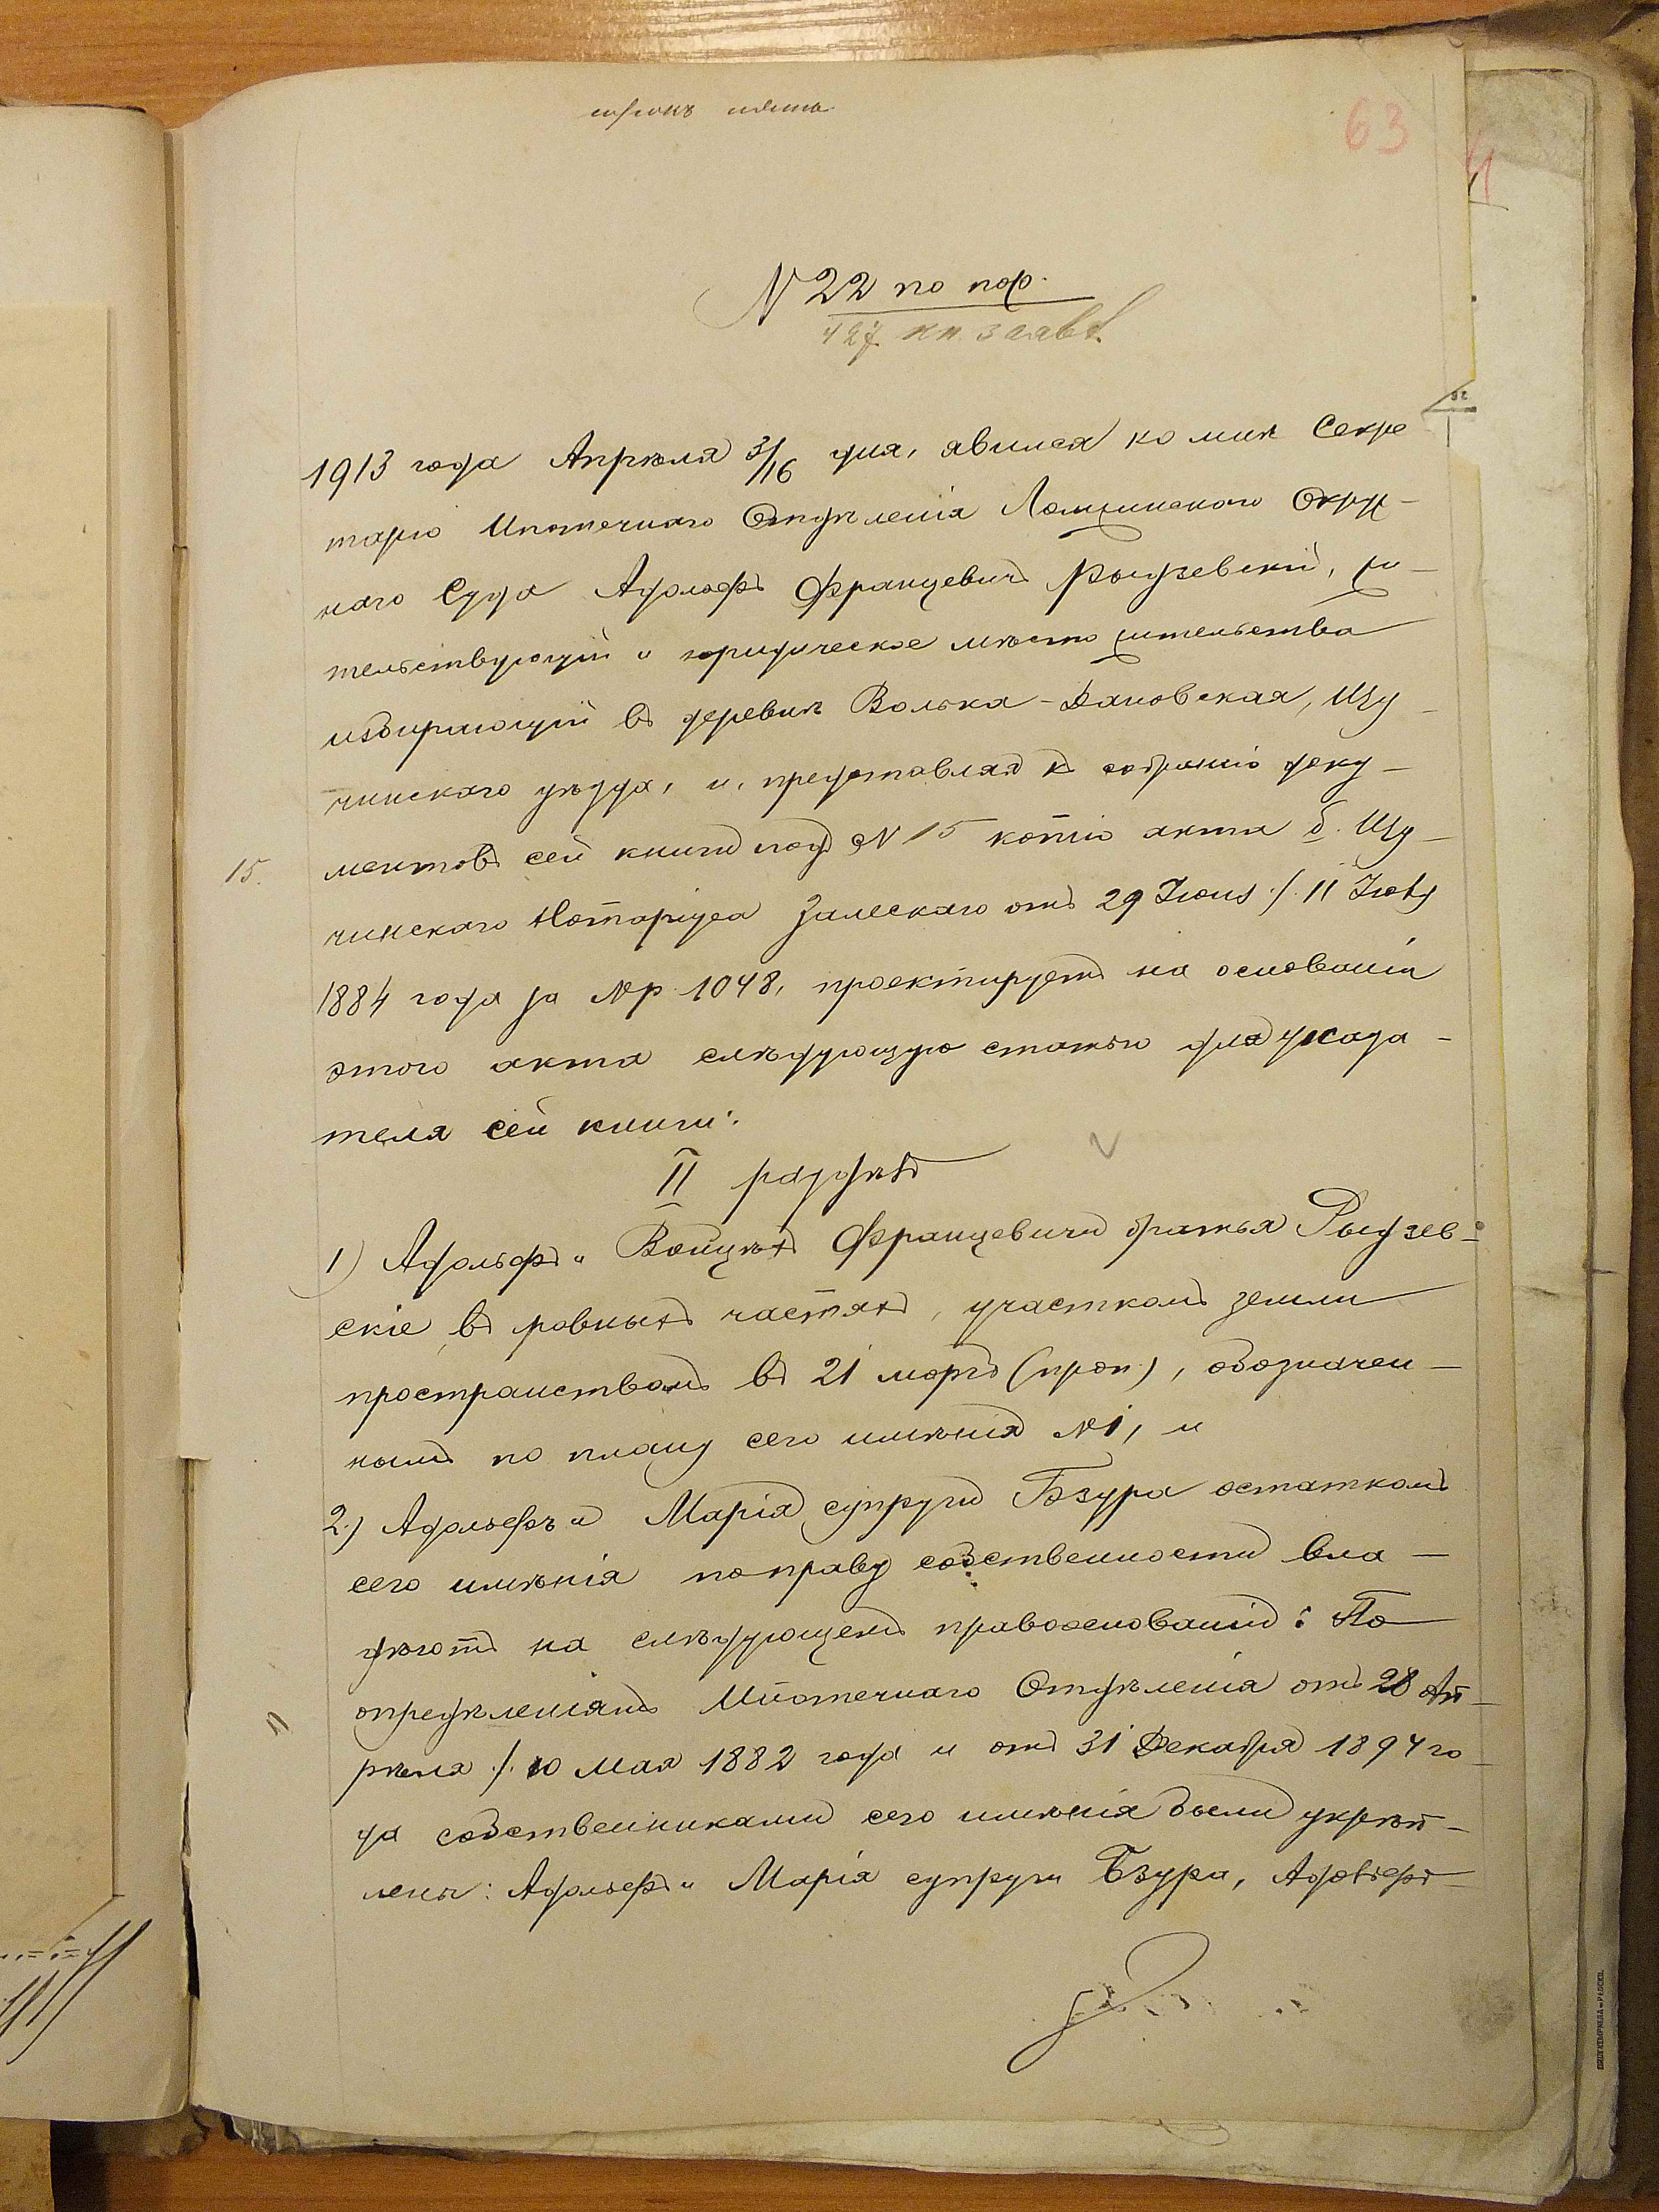 сорокъ пять
63
N 22 по пор.
427 кн. заявл.
1913 года Апрѣля 3/16 дня, явился ко мнѣ Секре
тарю Ипотечнаго Отдѣленія Ломжинскаго Окруж-
наго Суда Адольфъ Францевичъ Рыдзевскій, жи-
тельствующій и юридическое мѣсто жительства
избирающій въ деревнѣ Волька-Дановская, Щу-
чинскаго уѣзда, и, представляя къ собранію доку-
15.
ментовъ сей книги подъ N 15 копію акта б. Щу-
чинскаго Нотаріуса Залескаго отъ 29 Іюня /. 11 Іюля
1884 года за Nр. 1048, проектируетъ на основаніи
этого акта слѣдующую статью для указа-
теля сей книги:
II раздѣлъ
1) Адольфъ и Войцѣхъ Францевичи братья Рыдзев-
скіе въ ровныхъ частяхъ, участкомъ земли
пространствомъ въ 21 моргъ (проп.), обозначен-
нымъ по плану сего имѣнія N1, и
2.) Адольфъ и Марія супруги Бзура остаткомъ
сего имѣнія по праву собственности вла-
дѣютъ на слѣдующемъ правооснованіи: По
опредѣленіямъ Ипотечнаго Отдѣленія отъ 28 Ап-
рѣля /. 10 Мая 1882 года и отъ 31 Декабря 1894 го-
да собственниками сего имѣнія были укрѣп-
лены: Адольфъ и Марія супруги Бзура, Адольфъ